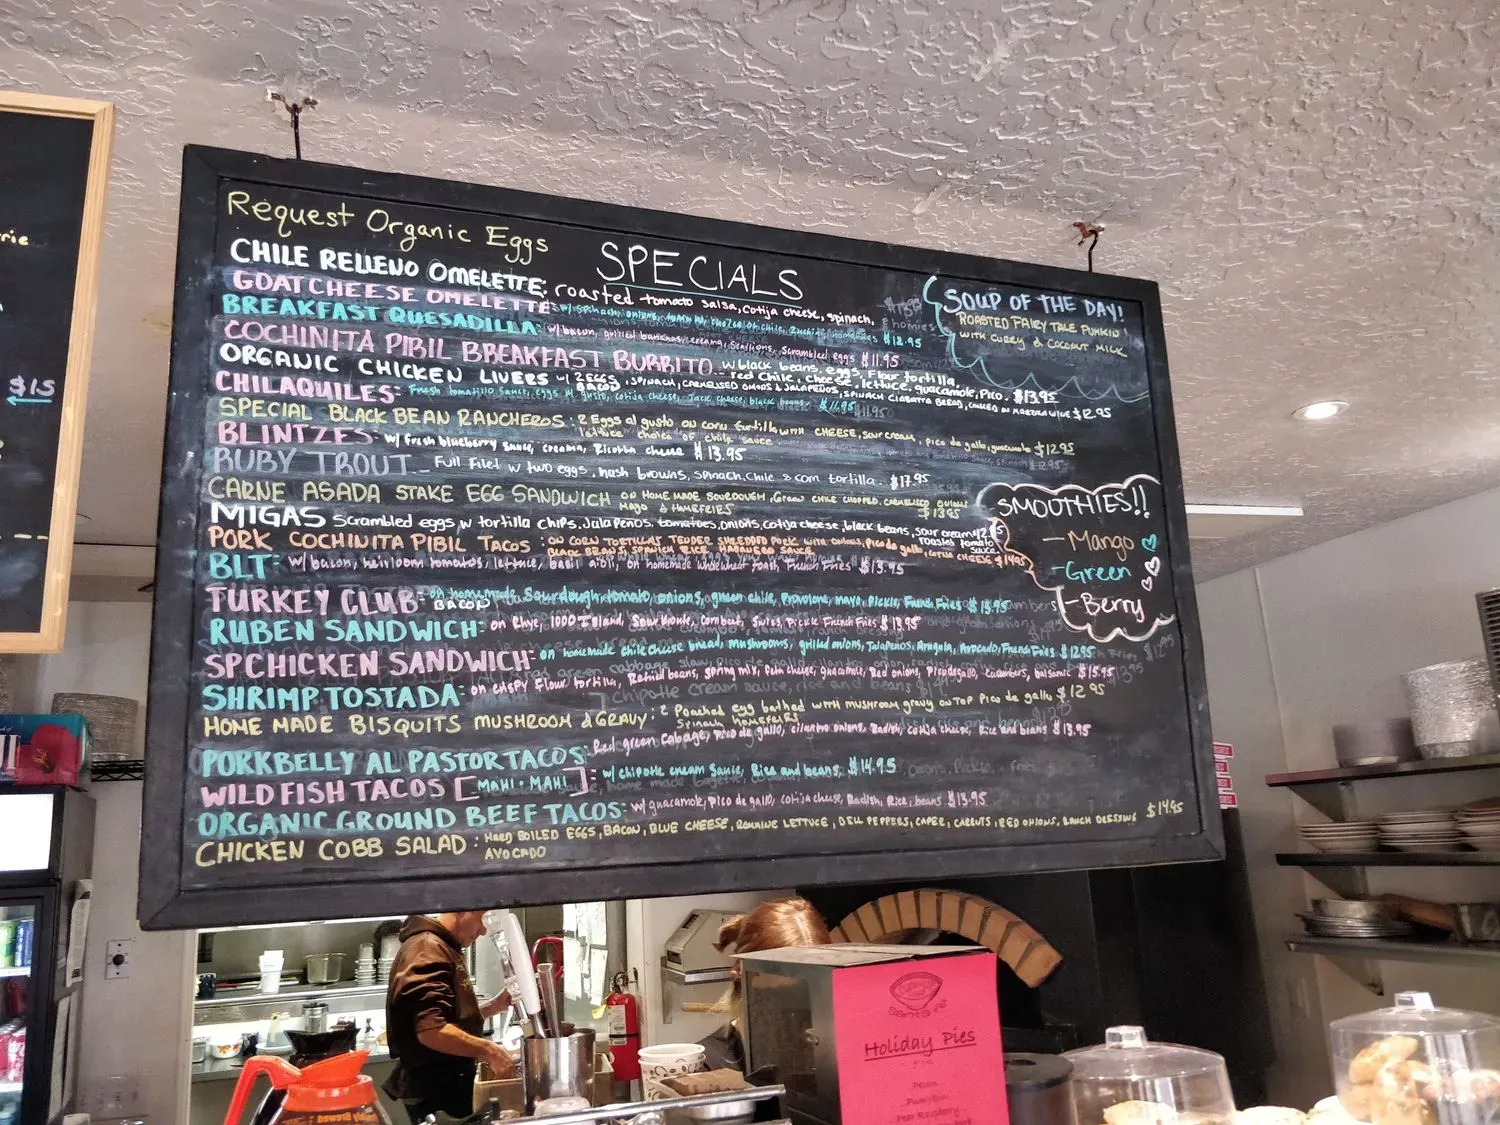 Request Organic Eggs
SPECIALS
CHILE RELLENO OMELETTE: roasted tomato salsa, cotija cheese, spinach,
GOAT CHEESE OMELETTE: w/ spinach, onions,
BREAKFAST QUESADILLA: w/ bacon, grilled bananas, crema, scallions, scrambled eggs $11.95
$12.95
COCHINITA PIBIL BREAKFAST BURRITO w/ black beans, eggs, Flour tortilla,
red chile, cheese, lettuce, guacamole, Pico. $13.95
ORGANIC CHICKEN LIVERS w/ 2 EGGS, SPINACH, CARMELISED ONIONS & JALAPEÑOS, SPINACH CIABATTA BREAD, COOKED IN MARSALA WINE $12.95
CHILAQUILES: Fresh tomatillo Sauce, eggs al gusto, cotija cheese, Jack cheese, black beans. $11.95
SPECIAL BLACK BEAN RANCHEROS: 2 Eggs al gusto on corn tortilla WITH CHEESE, sour cream, pico de gallo, guacamole $12.95
lettuce choice of chile sauce
BLINTZES- w/ fresh blueberry Sauce, creama, Ricotta cheese $13.95
RUBY TROUT - Full Filet w two eggs, hash browns, spinach, chile & corn tortilla. $17.95
CARNE ASADA STAKE EGG SANDWICH ON HOME MADE SOURDOUGH, Green CHILE CHOPPED, CARMELISED ONIONS
MAYO & HOMEFRIES $13.95
MIGAS Scrambled eggs w tortilla chips, Jalapeños, tomatoes, onions, cotija cheese, black beans, sour cream
roasted tomato
sauce
PORK COCHINITA PIBIL TACOS: ON CORN TORTILLAS TENDER SHREDDED PORK WITH ONIONS, Pico de gallo, COTIJA CHEESE $14.95
BLACK BEANS, SPANISH RICE, HABANERO SAUCE
BLT- w/ bacon, heirloom tomatos, lettuce, basil aioli, on homemade wholewheat toast, French Fries $13.95
TURKEY CLUB- on homemade Sourdough, tomato, onions, green chile, Provolone, mayo, Pickle, French Fries $13.95
BACON
RUBEN SANDWICH- on Rhye, 1000 Island, Sourkroute, Swiss, Pickle French Fries $13.95
SPCHICKEN SANDWICH- on homemade chile cheese bread, mushrooms, grilled onions, Jalapenos, Arugula, Avocado, French Fries $12.95
SHRIMP TOSTADA: on crispy Flour tortilla, Refried beans, spring mix, feta cheese, guacamole, Red onions, Pico de gallo, cucumbers, balsamic $15.95
HOME MADE BISQUITS MUSHROOM & GRAVY: 2 Poached egg bathed WITH mushroom gravy on TOP Pico de gallo $12.95
Spinach HOMEFRIES
PORKBELLY AL PASTOR TACOS: Red green Cabage, pico de gallo, cilantro onions, Radish, cotija cheese, Rice and beans $13.95
WILD FISH TACOS [MAHI-MAHI]: w/ chipotle cream Sauce, Rice and beans, $14.95
ORGANIC GROUND BEEF TACOS: w/ guacamole, pico de gallo, cotija cheese, Radish, Rice, beans $13.95
CHICKEN COBB SALAD: HARD BOILED EGGS, BACON, BLUE CHEESE, ROMAINE LETTUCE, BELL PEPPERS, CAPER, CARROTS, RED ONIONS, RANCH DRESSING $14.95
AVOCADO
SOUP OF THE DAY!
ROASTED FAIRY TALE PUMKIN!
WITH CURRY & COCONUT MILK
SMOOTHIES!!
-Mango
-Green
-Berry
$15
Holiday Pies
Pecan
Pumpkin